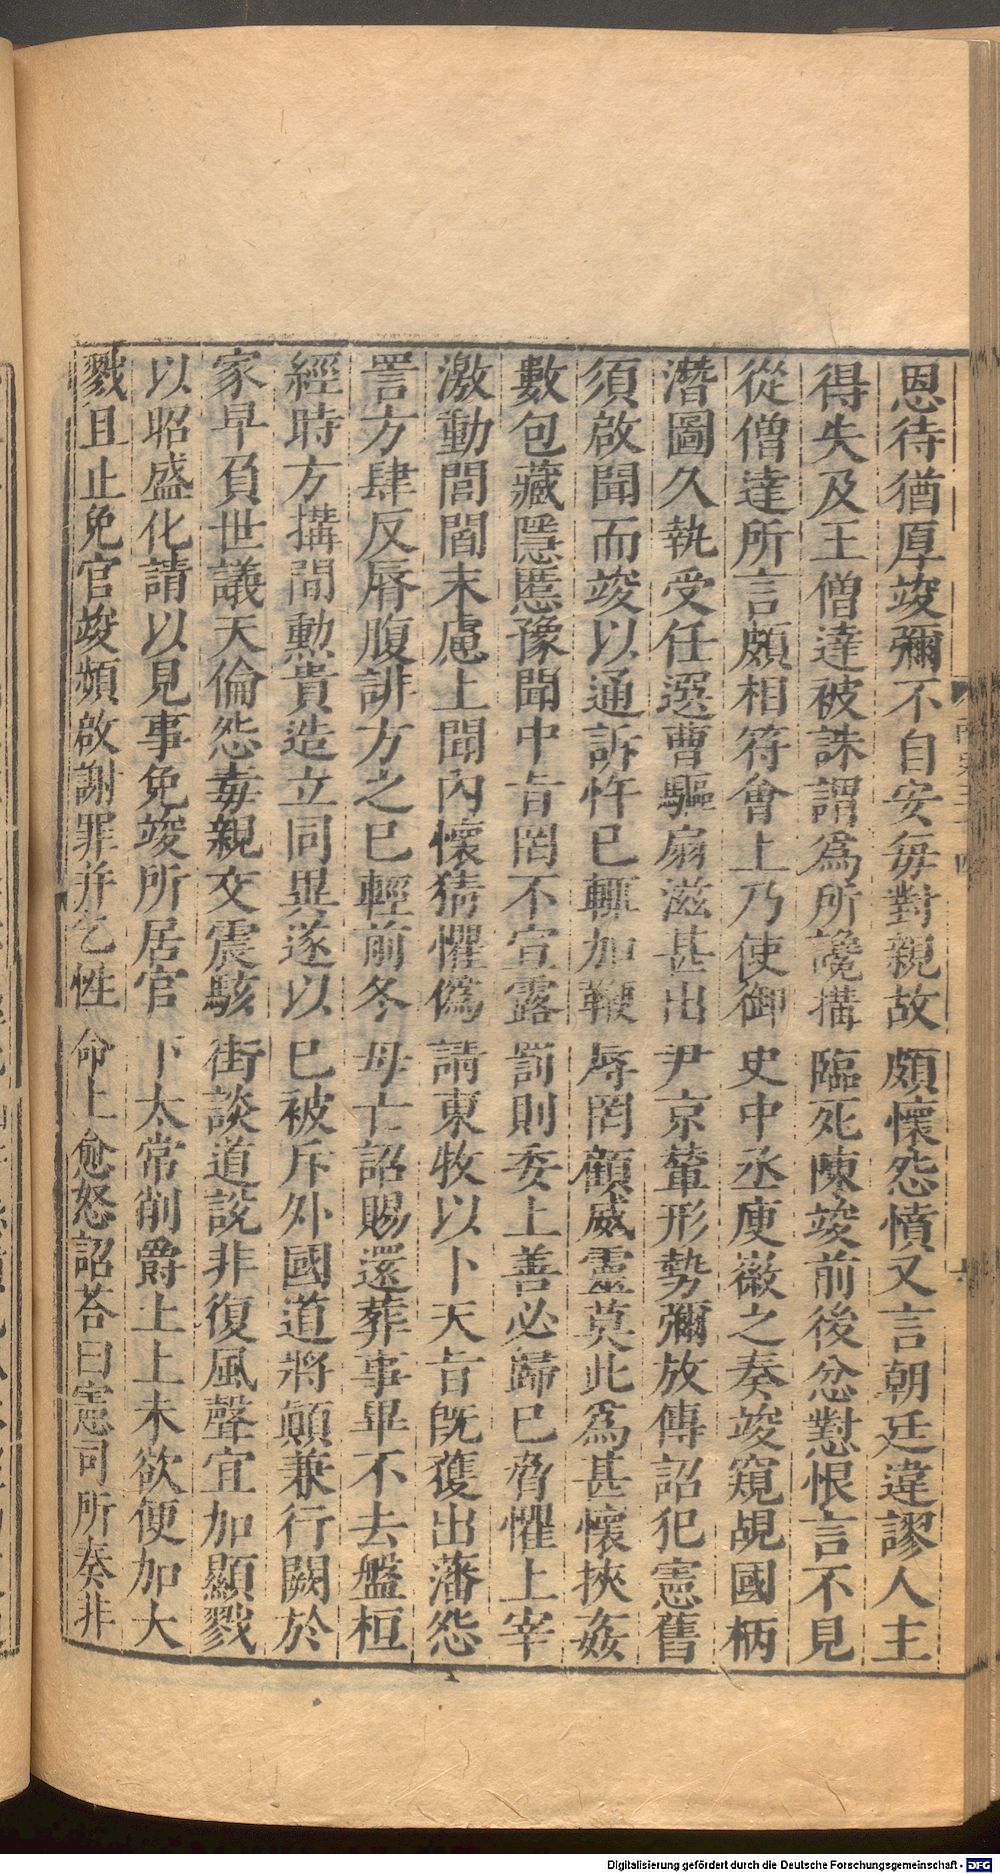 恩待猶厚竣彌不自安每對親故頗懷怨憤又言朝廷違謬人主
得失及王僧達被誅謂爲所讒搆臨死陳竣前後忿懟恨言不見
從僧達所言頗相符會上乃使御史中丞庾徽之奏竣窺覘國柄
潛圖久執受任選曹驅扇滋甚出尹京輦形勢彌放傳詔犯憲舊
須啟聞而竣以通訴忤巳輒加鞭辱罔顧威靈莫此爲甚懷挾姦
數包藏隱慝豫聞中旨罔不宣露罰則委上善必歸巳脅懼上宰
激動閭閻末慮上聞內懷猜懼僞請東牧以卜天旨旣獲出藩怨
詈方肆反脣腹誹方之巳輕前冬母亡詔賜還葬事畢不去盤桓
經時方搆間勲貴造立同異遂以巳被斥外國道將顚兼行闕於
家早負世議天倫怨毒親交震駭街談道說非復風聲宜加顯戮
以昭盛化請以見事免竣所居官下太常削爵土上未欲便加大
戮且止免官竣頻啟謝罪幷乞性命上愈怒詔荅曰憲司所奏非
Digitalisierung gefördert durch die Deutsche Forschungsgemeinschaft - DFG